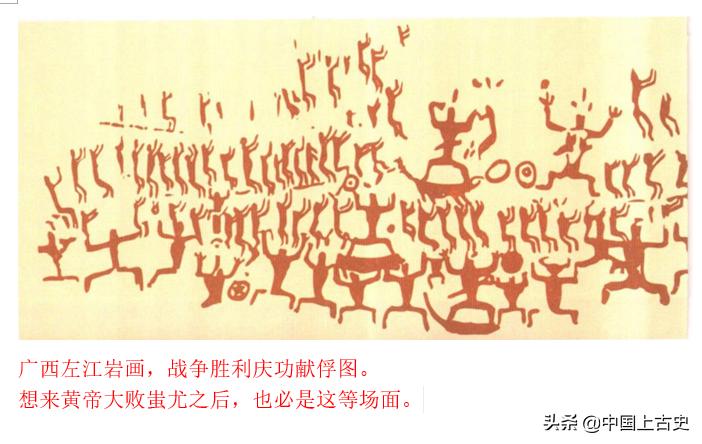 广西左江岩画，战争胜利庆功献俘图。
想来黄帝大败蚩尤之后，也必是这等场面。
头条 @中国上古史